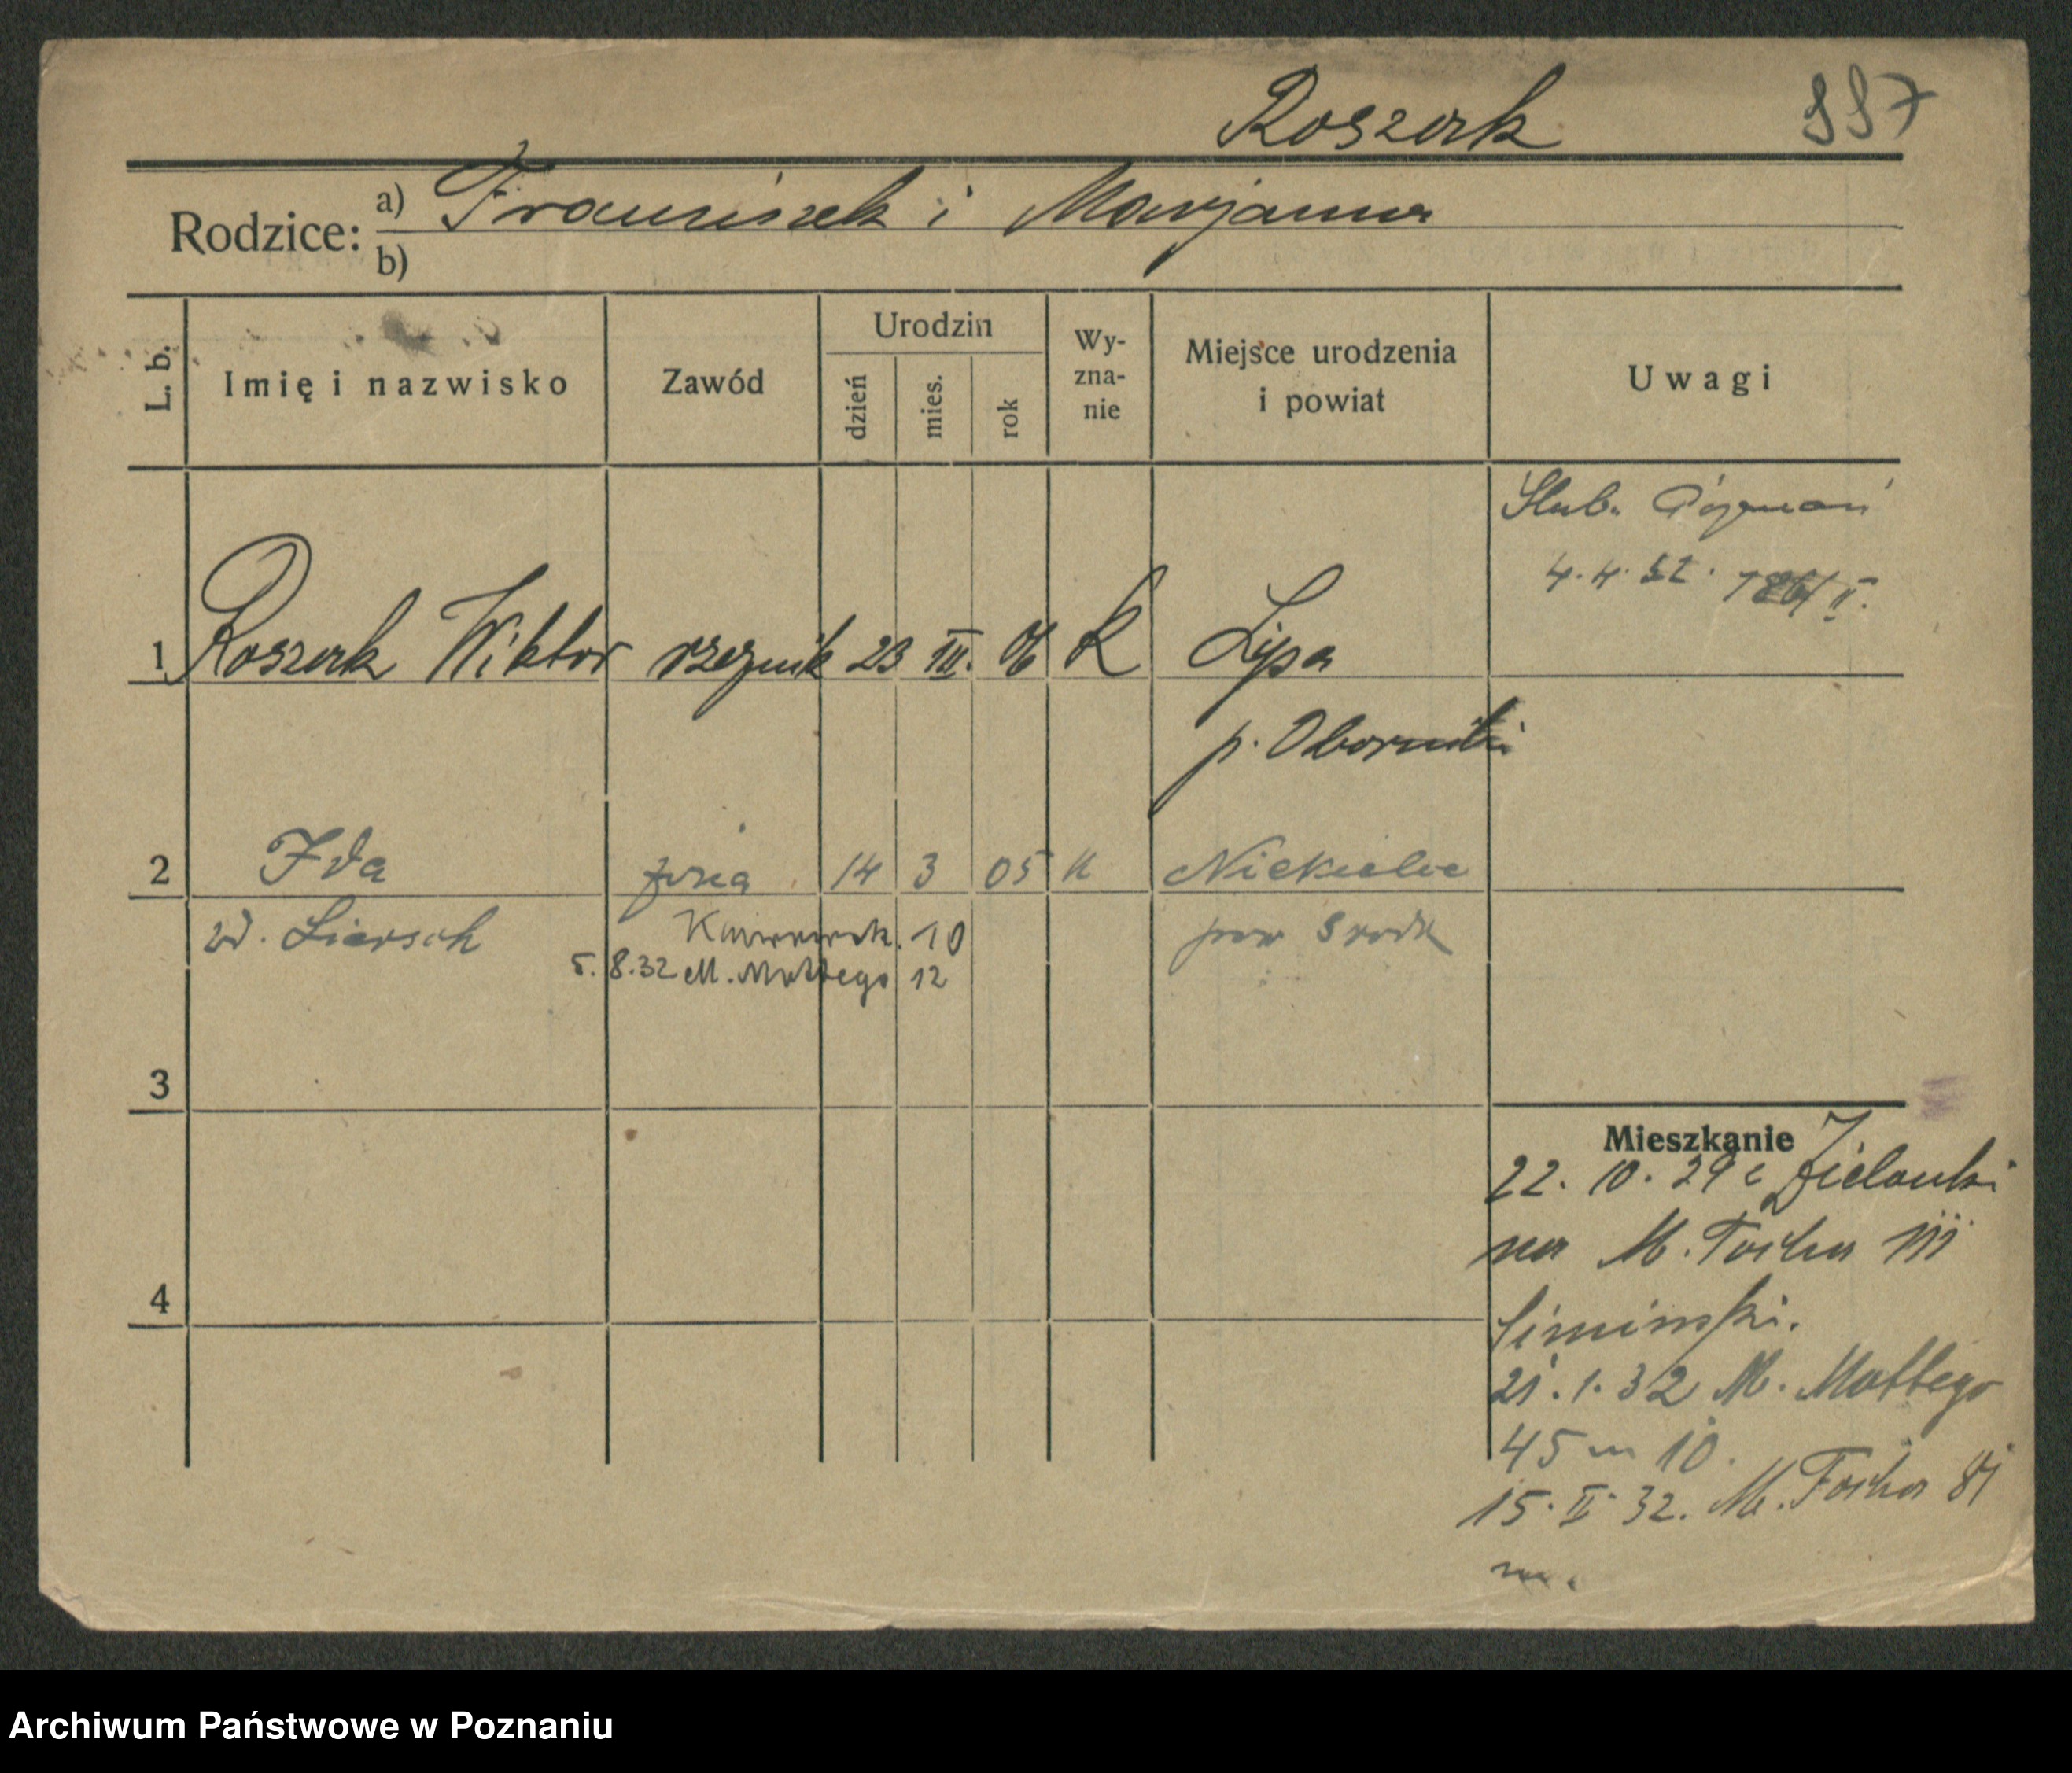 Roszak 997
Rodzice: a) Franciszek i Marjanna
b)
L. b. Imię i nazwisko Zawód Urodzin dzień mies. rok Wy-zna-nie Miejsce urodzenia i powiat Uwagi
Slub. Poznań
4.4.32.
1 Roszak Wiktor rzeznik 23 III. 06 K Lipa
p. Oborniki
2 Ida żona 14 3 05 K Niekielce
zd. Liersch pow Srodk
10
5.8.32 M. Mottego 12
3
Mieszkanie
22. 10. 29 Zielonki
na M. Focha 111
Simiński.
21.1.32 M. Mottego
45 m 10.
15. II 32. M. Focha 81
m.
4
Archiwum Państwowe w Poznaniu